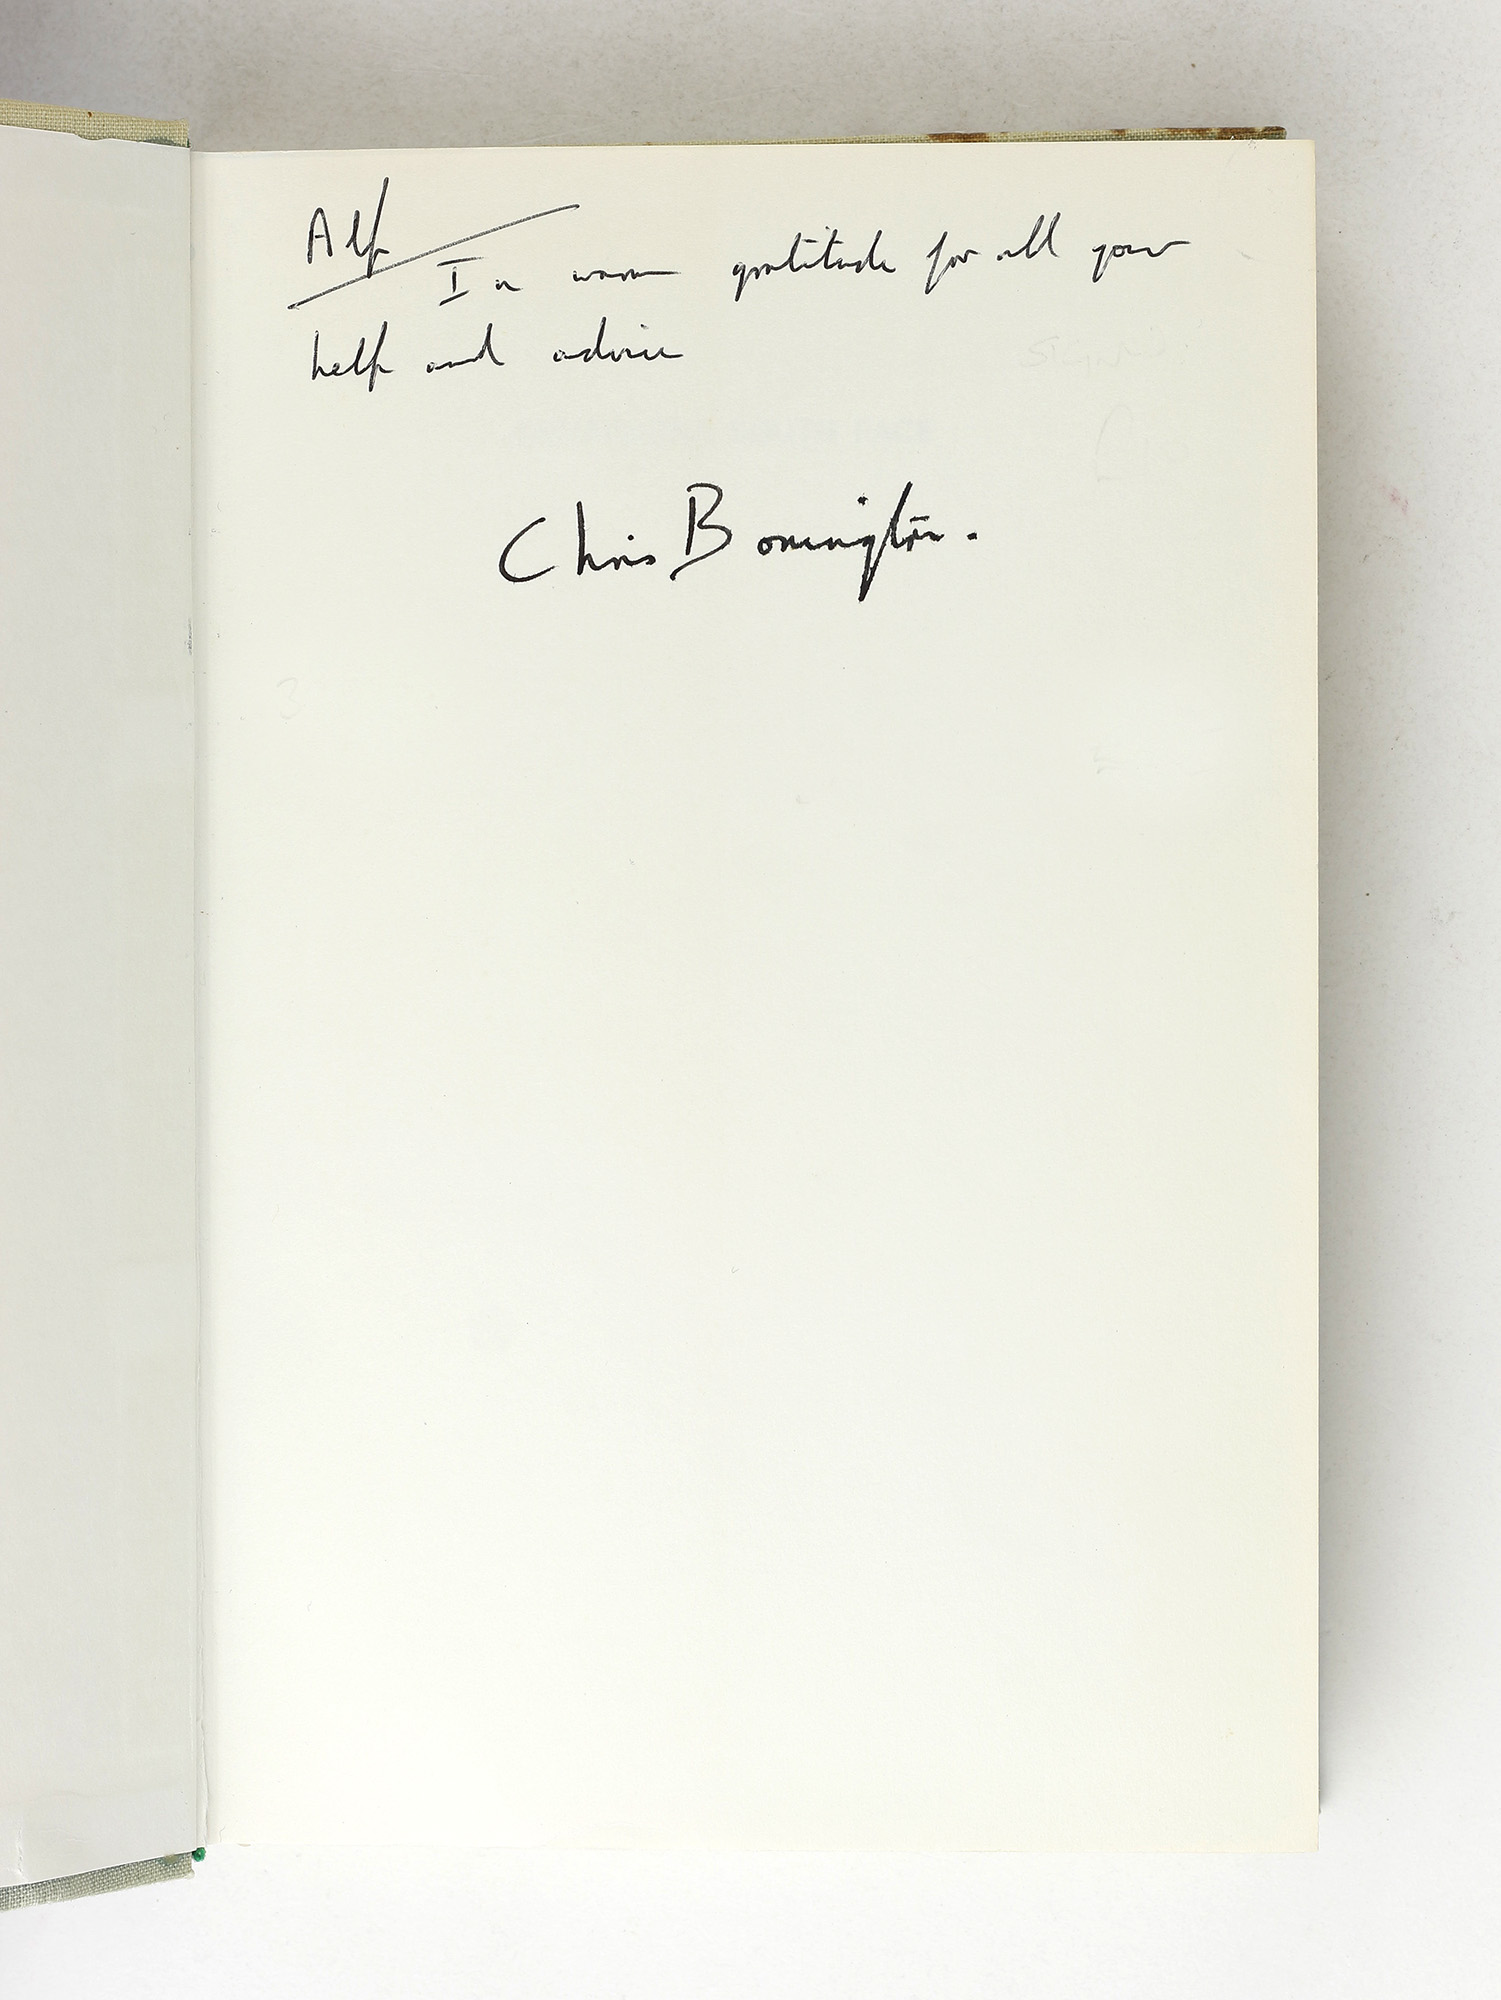 Alf
In warm gratitude for all your
help and advice
Chris Bonington.